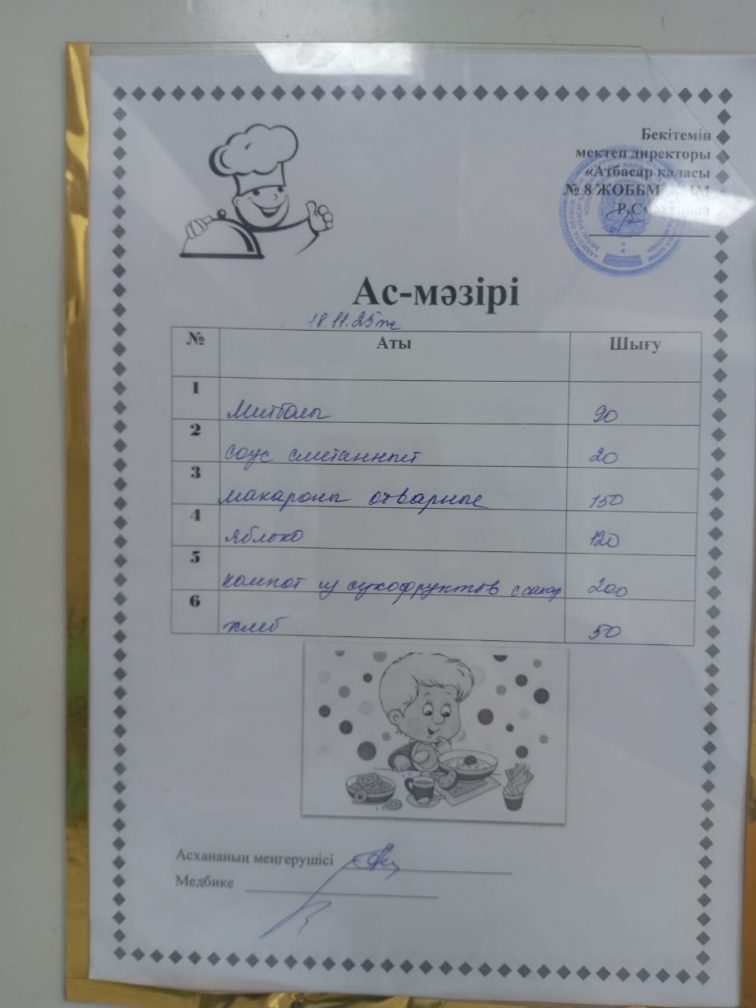 Бекітемін
мектеп директоры
«Атбасар қаласы
№ 8 ЖОББМ
Ас-мәзірі
18.11.25ж
№ Аты Шығу
1 Митболы 90
2 соус сметанный 20
3 макароны отварные 150
4 яблоко 120
5 компот из сухофруктов с сахар 200
6 хлеб 50
Асхананың меңгерушісі
Медбике